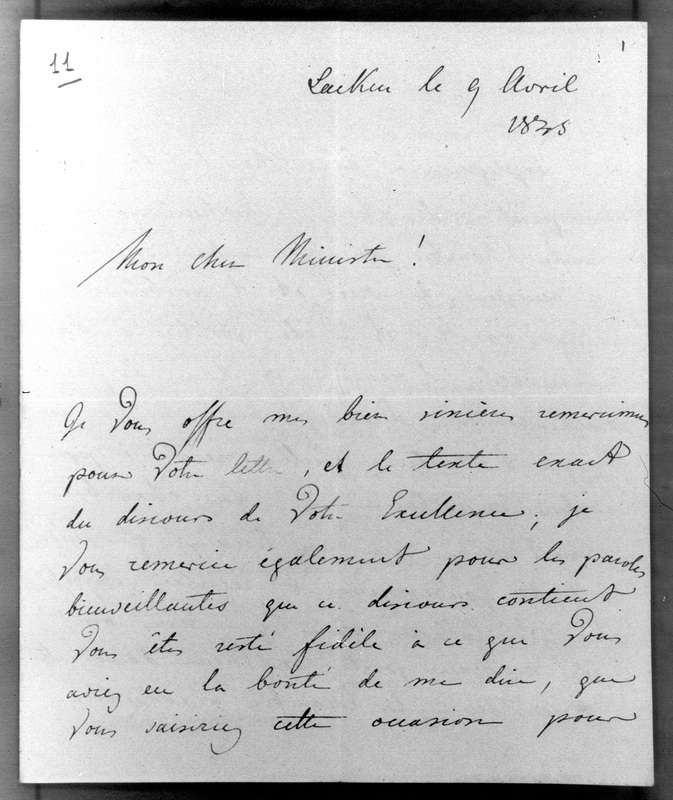 11
1
Laeken le 9 Avril
1848
Mon cher Ministre !
Je Vous offre mes bien sincères remerciemens
pour Votre lettre, et le texte exact
du discours de Votre Excellence; je
Vous remercie également pour les paroles
bienveillantes que ce discours contient
Vous êtes resté fidèle à ce que Vous
aviez eu la bonté de me dire, que
Vous saisiriez cette occasion pour